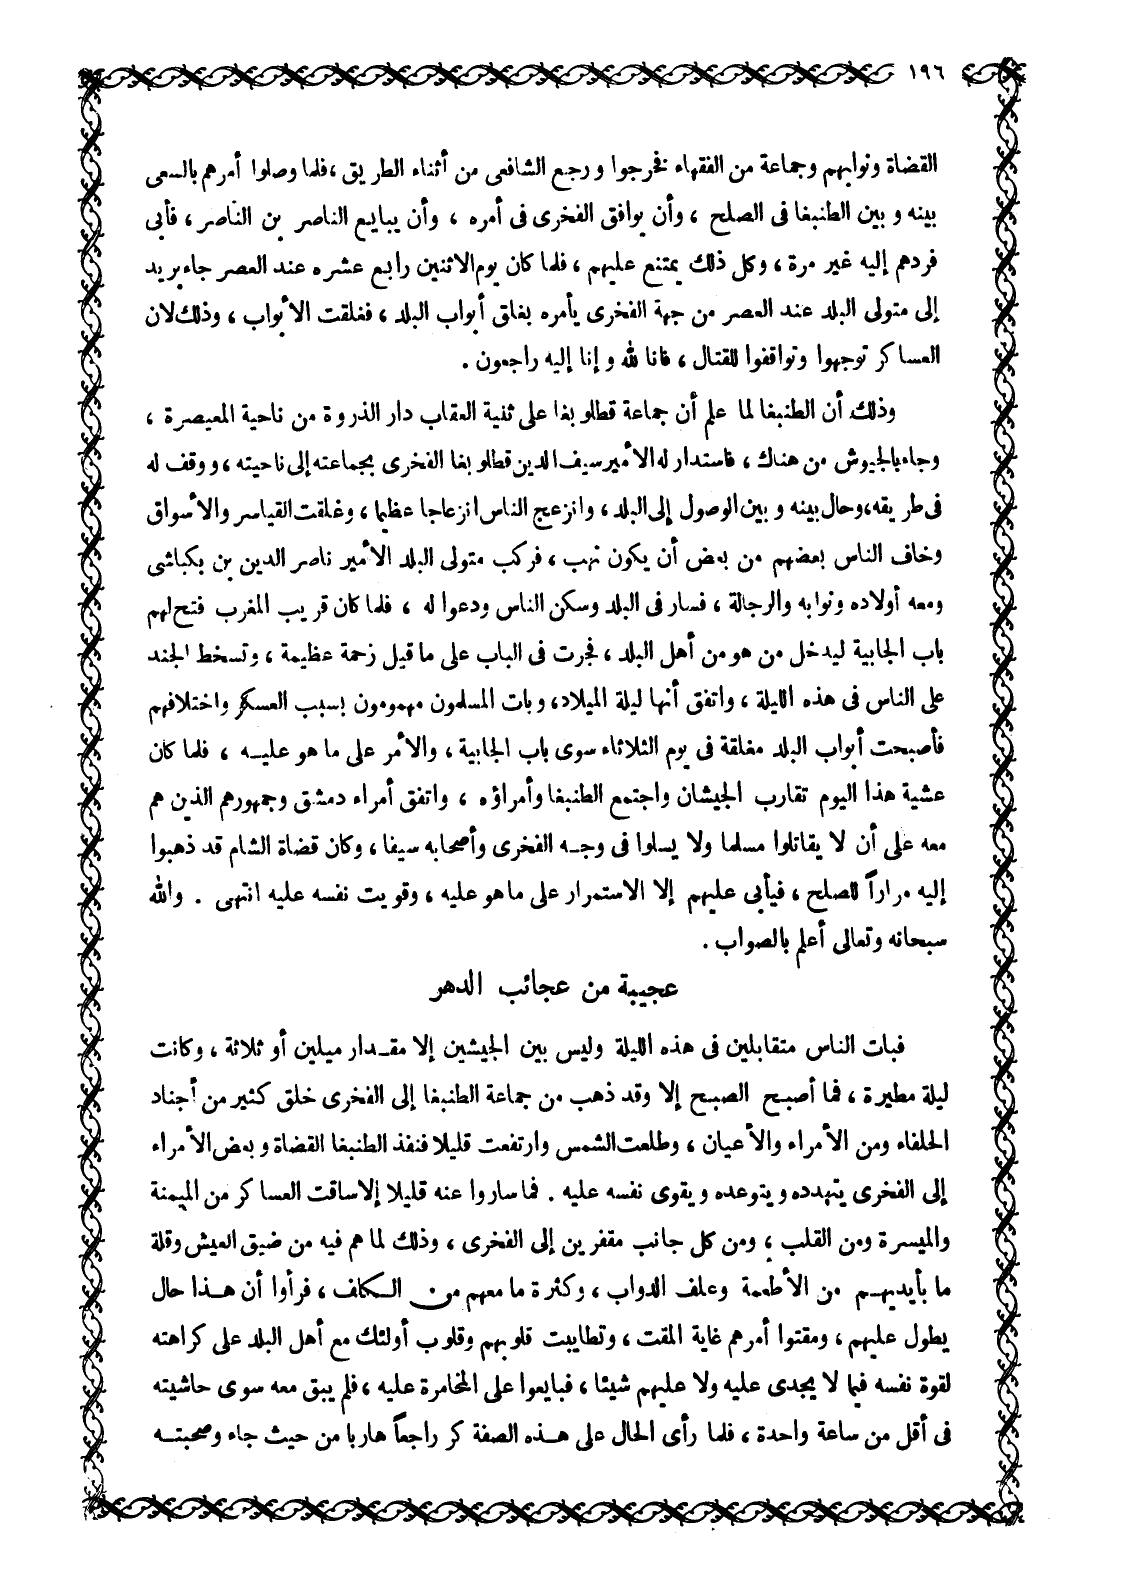 ١٩٦
القضاة ونوابهم وجماعة من الفقهاء فخرجوا ورجع الشافعى من أثناء الطريق ، فلما وصلوا أمرهم بالسعى
بينه وبين الطنبغا فى الصلح ، وأن يوافق الفخرى فى أمره ، وأن يبايع الناصر بن الناصر ، فأبى
فردهم إليه غير مرة ، وكل ذلك يمتنع عليهم ، فلما كان يوم الاثنين رابع عشره عند العصر جاء بريد
إلى متولى البلد عند العصر من جهة الفخرى يأمره بغلق أبواب البلد ، فغلقت الأبواب ، وذلك لان
العساكر توجهوا وتواقفوا للقتال ، فانا لله وإنا إليه راجعون .
وذلك أن الطنبغا لما علم أن جماعة قطلو بغا على ثنية العقاب دار الذروة من ناحية المعيصرة ،
وجاء بالجيوش من هناك ، فاستدار له الأمير سيف الدين قطلو بغا الفخرى بجماعته إلى ناحيته ، ووقف له
فى طريقه ، وحال بينه وبين الوصول إلى البلد ، وانزعج الناس انزعاجا عظيما ، وغلقت القياسر والأسواق
وخاف الناس بعضهم من بعض أن يكون نهب ، فركب متولى البلد الأمير ناصر الدين بن بكباشى
ومعه أولاده ونوابه والرجالة ، فسار فى البلد وسكن الناس ودعوا له ، فلما كان قريب المغرب فتح لهم
باب الجابية ليدخل من هو من أهل البلد ، فجرت فى الباب على ما قيل زحمة عظيمة ، وتسخط الجند
على الناس فى هذه الليلة ، واتفق أنها ليلة الميلاد ، وبات المسلمون مهمومون بسبب العسكر واختلافهم
فأصبحت أبواب البلد مغلقة فى يوم الثلاثاء سوى باب الجابية ، والأمر على ما هو عليه ، فلما كان
عشية هذا اليوم تقارب الجيشان واجتمع الطنبغا وأمراؤه ، واتفق أمراء دمشق وجمهورهم الذين هم
معه على أن لا يقاتلوا مسلما ولا يسلوا فى وجه الفخرى وأصحابه سيفا ، وكان قضاة الشام قد ذهبوا
إليه مراراً للصلح ، فيأبى عليهم إلا الاستمرار على ما هو عليه ، وقويت نفسه عليه انتهى . والله
سبحانه وتعالى أعلم بالصواب .
عجيبة من عجائب الدهر
فبات الناس متقابلين فى هذه الليلة وليس بين الجيشين إلا مقدار ميلين أو ثلاثة ، وكانت
ليلة مطيرة ، فما أصبح الصبح إلا وقد ذهب من جماعة الطنبغا إلى الفخرى خلق كثير من أجناد
الحلفاء ومن الأمراء والأعيان ، وطلعت الشمس وارتفعت قليلا فنفذ الطنبغا القضاة وبعض الأمراء
إلى الفخرى يتهدده ويتوعده ويقوى نفسه عليه . فما ساروا عنه قليلا إلا ساقت العساكر من الميمنة
والميسرة ومن القلب ، ومن كل جانب مقفرين إلى الفخرى ، وذلك لما هم فيه من ضيق العيش وقلة
ما بأيديهم من الأطعمة وعلف الدواب ، وكثرة ما معهم من الكلف ، فرأوا أن هذا حال
يطول عليهم ، ومقتوا أمرهم غاية المقت ، وتطايبت قلوبهم وقلوب أولئك مع أهل البلد على كراهته
لقوة نفسه فيما لا يجدى عليه ولا عليهم شيئا ، فبايعوا على المخامرة عليه ، فلم يبق معه سوى حاشيته
فى أقل من ساعة واحدة ، فلما رأى الحال على هذه الصفة كر راجعاً هاربا من حيث جاء وصحبته